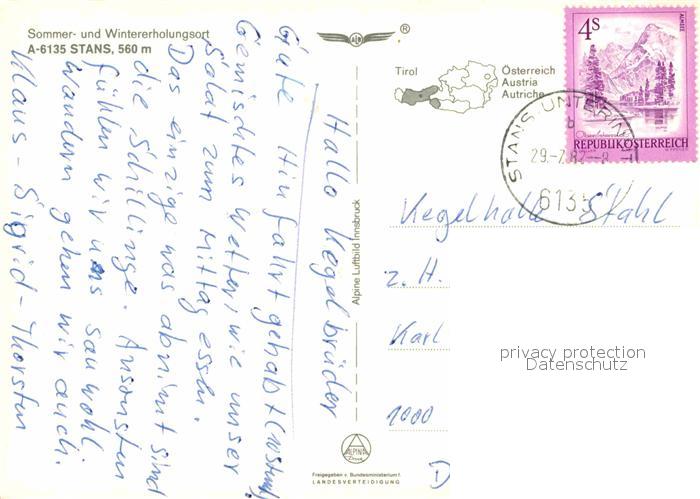 Sommer- und Wintererholungsort
A-6135 STANS, 560 m
Hallo Kegelbrüder
Gute Hinfahrt gehabt
Gemischtes Wetter, wie unser
Salat zum Mittagessen.
Das einzige was abnimt sind
die Schillinge. Ansonsten
fühlen wir uns sauwohl.
Wandern gehen wir auch.
Klaus - Sigrid - Thorsten
ALPINA
®
Tirol
Österreich
Austria
Autriche
Alpine Luftbild Innsbruck
4S
ALMSEE
Oberösterreich
REPUBLIK ÖSTERREICH
STANS UNTERINNT
b
29.-7.82-8
6135
Kegelhalle Stahl
z. H.
Karl
1000
D
privacy protection
Datenschutz
ALPINA
Druck
Freigegeben v. Bundesministerium f.
LANDESVERTEIDIGUNG